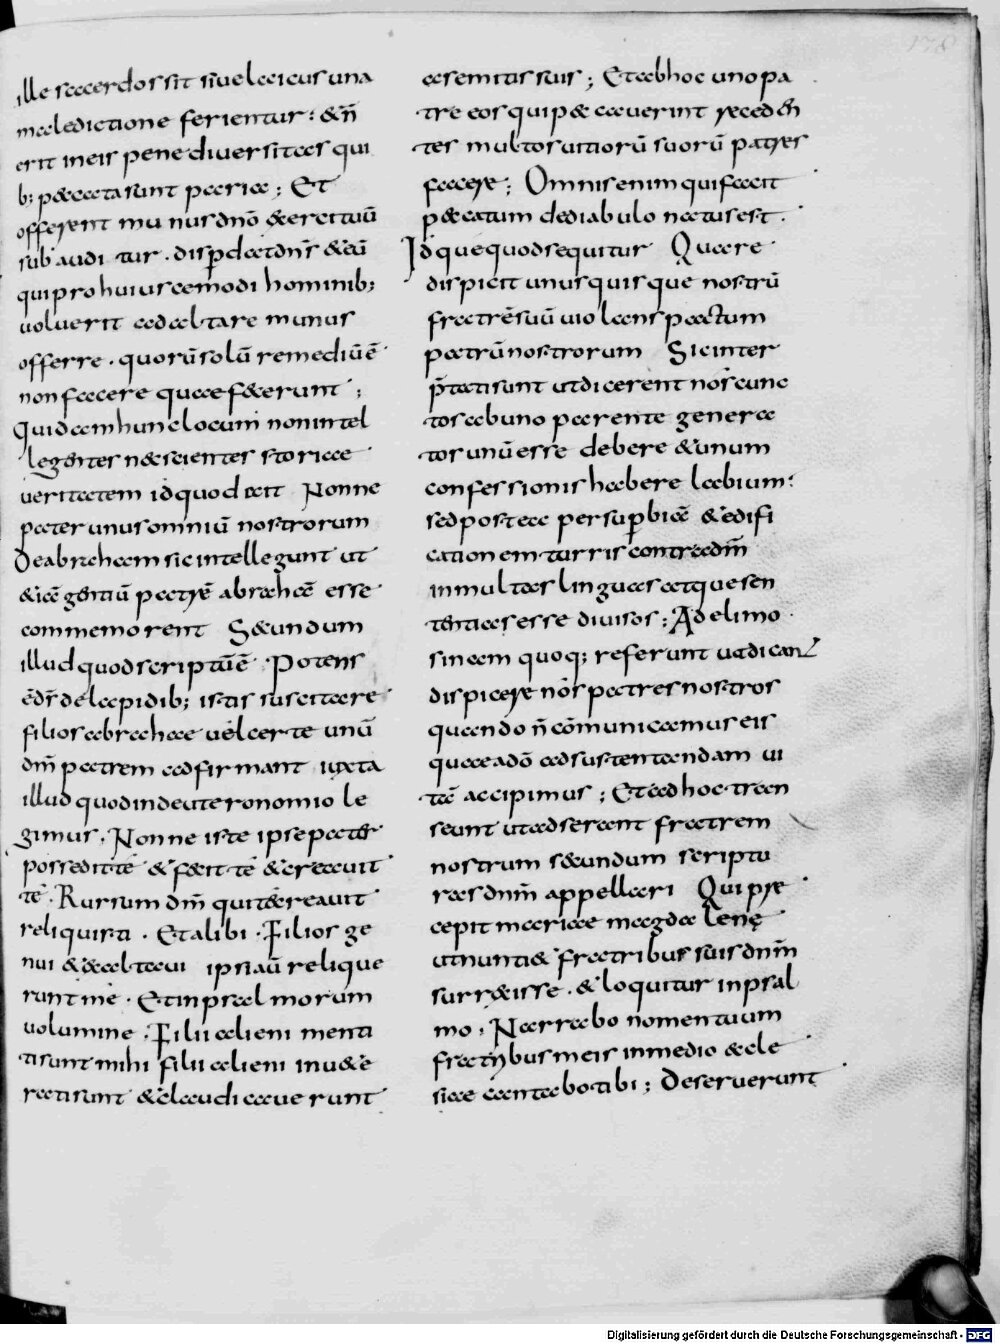 ille sacerdos sit siue laicus una
maledictione ferientur: & n̄
erit in eis pene diuersitas qui
b; peccata sunt paria; Et
offerent munus dn̄o exercituū
subauditur. disperdat dn̄s & eū
qui pro huiuscemodi hominib;
uoluerit ad altare munus
offerre. quorū solū remediū ē
non facere quae fecerunt;
Quidam hunc locum non intel
legentes nec scientes storiae
ueritatem id quod ait Nonne
pater unus omniū nostrorum
De abraham sic intellegunt ut
etiā gentiū patrē abrahā esse
commemorent Secundum
illud quod scriptū ē. Potens
ē dr̄ de lapidib; istis suscitare
filios abrahae uel certe unū
dm̄ patrem adfirmant iuxta
illud quod in deuteronomio le
gimus. Nonne iste ipse pater
possedit tē & fecit tē & creauit
tē. Rursum dm̄ qui te creauit
reliquisti. Et alibi. Filios ge
nui & exaltaui ipsi aū relique
runt me. Et in psalmorum
uolumine. Filii alieni menti
ti sunt mihi filii alieni inuete
rati sunt & claudicauerunt
a semitis suis; Et ab hoc uno pa
tre eos qui peccauerint recedn̄
tes multos uitiorū suorū patres
facere; Omnis enim qui facit
peccatum de diabulo natus est.
Idque quod sequitur Quare
dispicit unusquisque nostrū
fratrē suū uiolans pactum
patrū nostrorum Sic inter
p̄tati sunt ut dicerent nos cunc
tos ab uno parente genera
tos unū esse debere & unum
confessionis habere labium:
sed postea per superbiā & edifi
cationem turris contra dm̄
in multas linguas atque sen
tentias esse diuisos; Ad elimo
sinam quoq; referunt ut dicant
dispicere nos patres nostros
quando n̄ cōmunicamus eis
quae a dō ad sustentandam ui
tā accipimus; Et ad hoc tran
seunt ut adserant fratrem
nostrum secundum scriptu
ras dnm̄ appellari Qui prę
cepit mariae magdalenę
ut nunti& fratribus suis dnm̄
surrexisse. & loquitur in psal
mo. Narrabo nomen tuum
fratribus meis in medio eccle
siae cantabo tibi; Deseruerunt
Digitalisierung gefördert durch die Deutsche Forschungsgemeinschaft - DFG